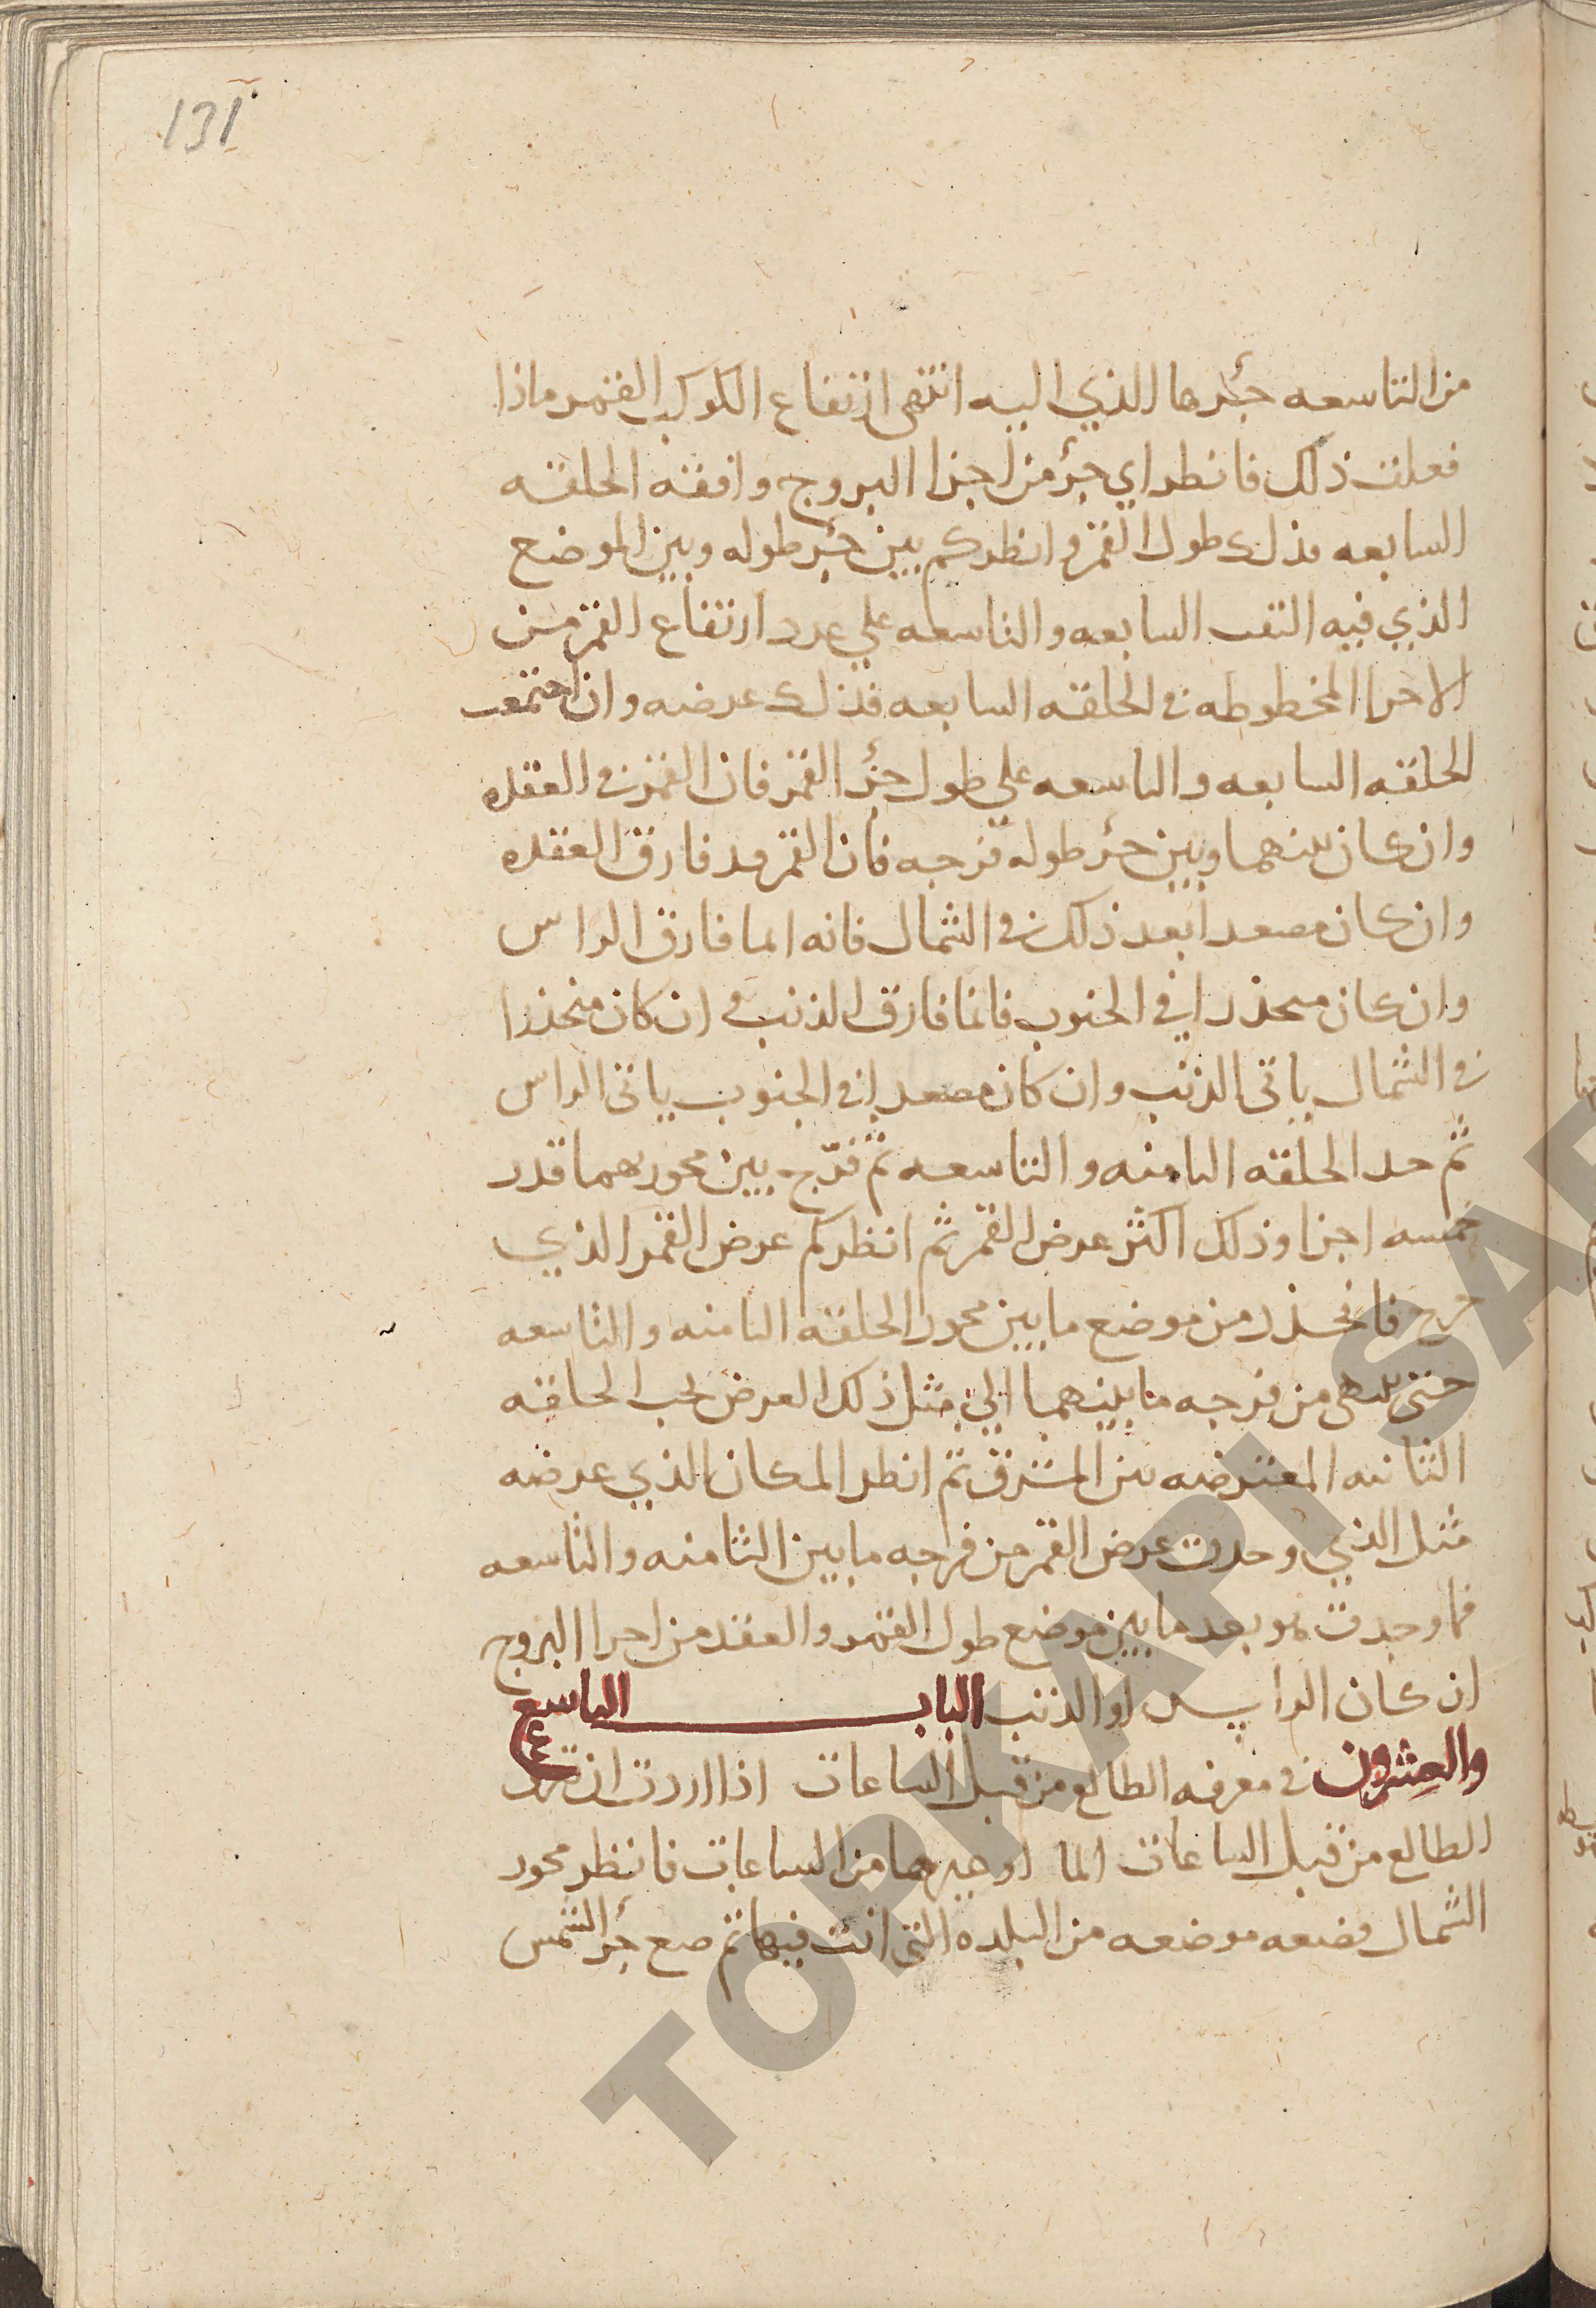 131
من التاسعه جزءها الذي اليه انتهى ارتفاع الكوكب القمر ماذا
فعلت ذلك فانظر اي جزء من اجزا البروج وافقه الحلقه
السابعه فذلك طول القمر وانظر كم بين جزء طوله وبين الموضع
الذي فيه التقت السابعه والتاسعه علي عدد ارتفاع القمر من
الاجزا المخطوطه في الحلقه السابعه فذلك عرضه وان اجتمعت
الحلقه السابعه والتاسعه علي طول جزء القمر فان القمر في العقده
وان كان بينهما وبين جزء طوله فرجه فان القمر قد فارق العقده
وان كان مصعدا بعد ذلك في الشمال فانه انما فارق الراس
وان كان منحدرا في الجنوب فانما فارق الذنب وان كان منحدرا
في الشمال ياتى الذنب وان كان مصعدا في الجنوب ياتى الراس
ثم خذ الحلقه الثامنه والتاسعه ثم فرّج بين محورهما قدر
خمسه اجزا وذلك اكثر عرض القمر ثم انظر كم عرض القمر الذي
خرج فانحدر من موضع ما بين محور الحلقه الثامنه والتاسعه
حتى تنتهى من فرجه ما بينهما الي مثل ذلك العرض الحلقه
الثانيه المعترضه من المشرق ثم انظر المكان الذي عرضه
مثل الذي وجدت عرض القمر من فرجه ما بين الثامنه والتاسعه
فما وجدت هو بعد ما بين موضع طول القمر والعقد من اجزا البروج
ان كان الراس او الذنب الباب التاسع
والعشرون في معرفه الطالع من قبل الساعات اذا اردت ان تعرف
الطالع من قبل الساعات الما او غيرها من الساعات فانظر محور
الشمال فضعه موضعه من البلده التى انت فيها ثم ضع جزء الشمس
TOPKAPI SA